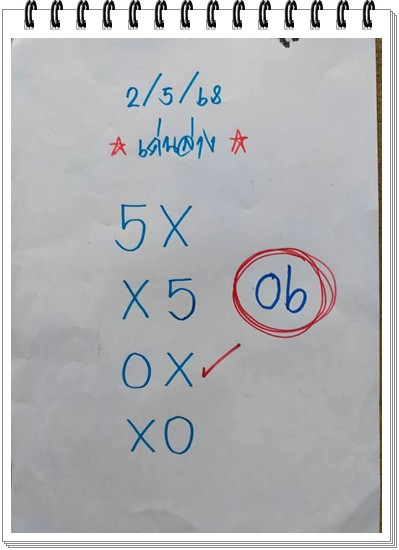 2/5/68
☆ เด่นล่าง ☆
5X
X5
06
0X✓
X0